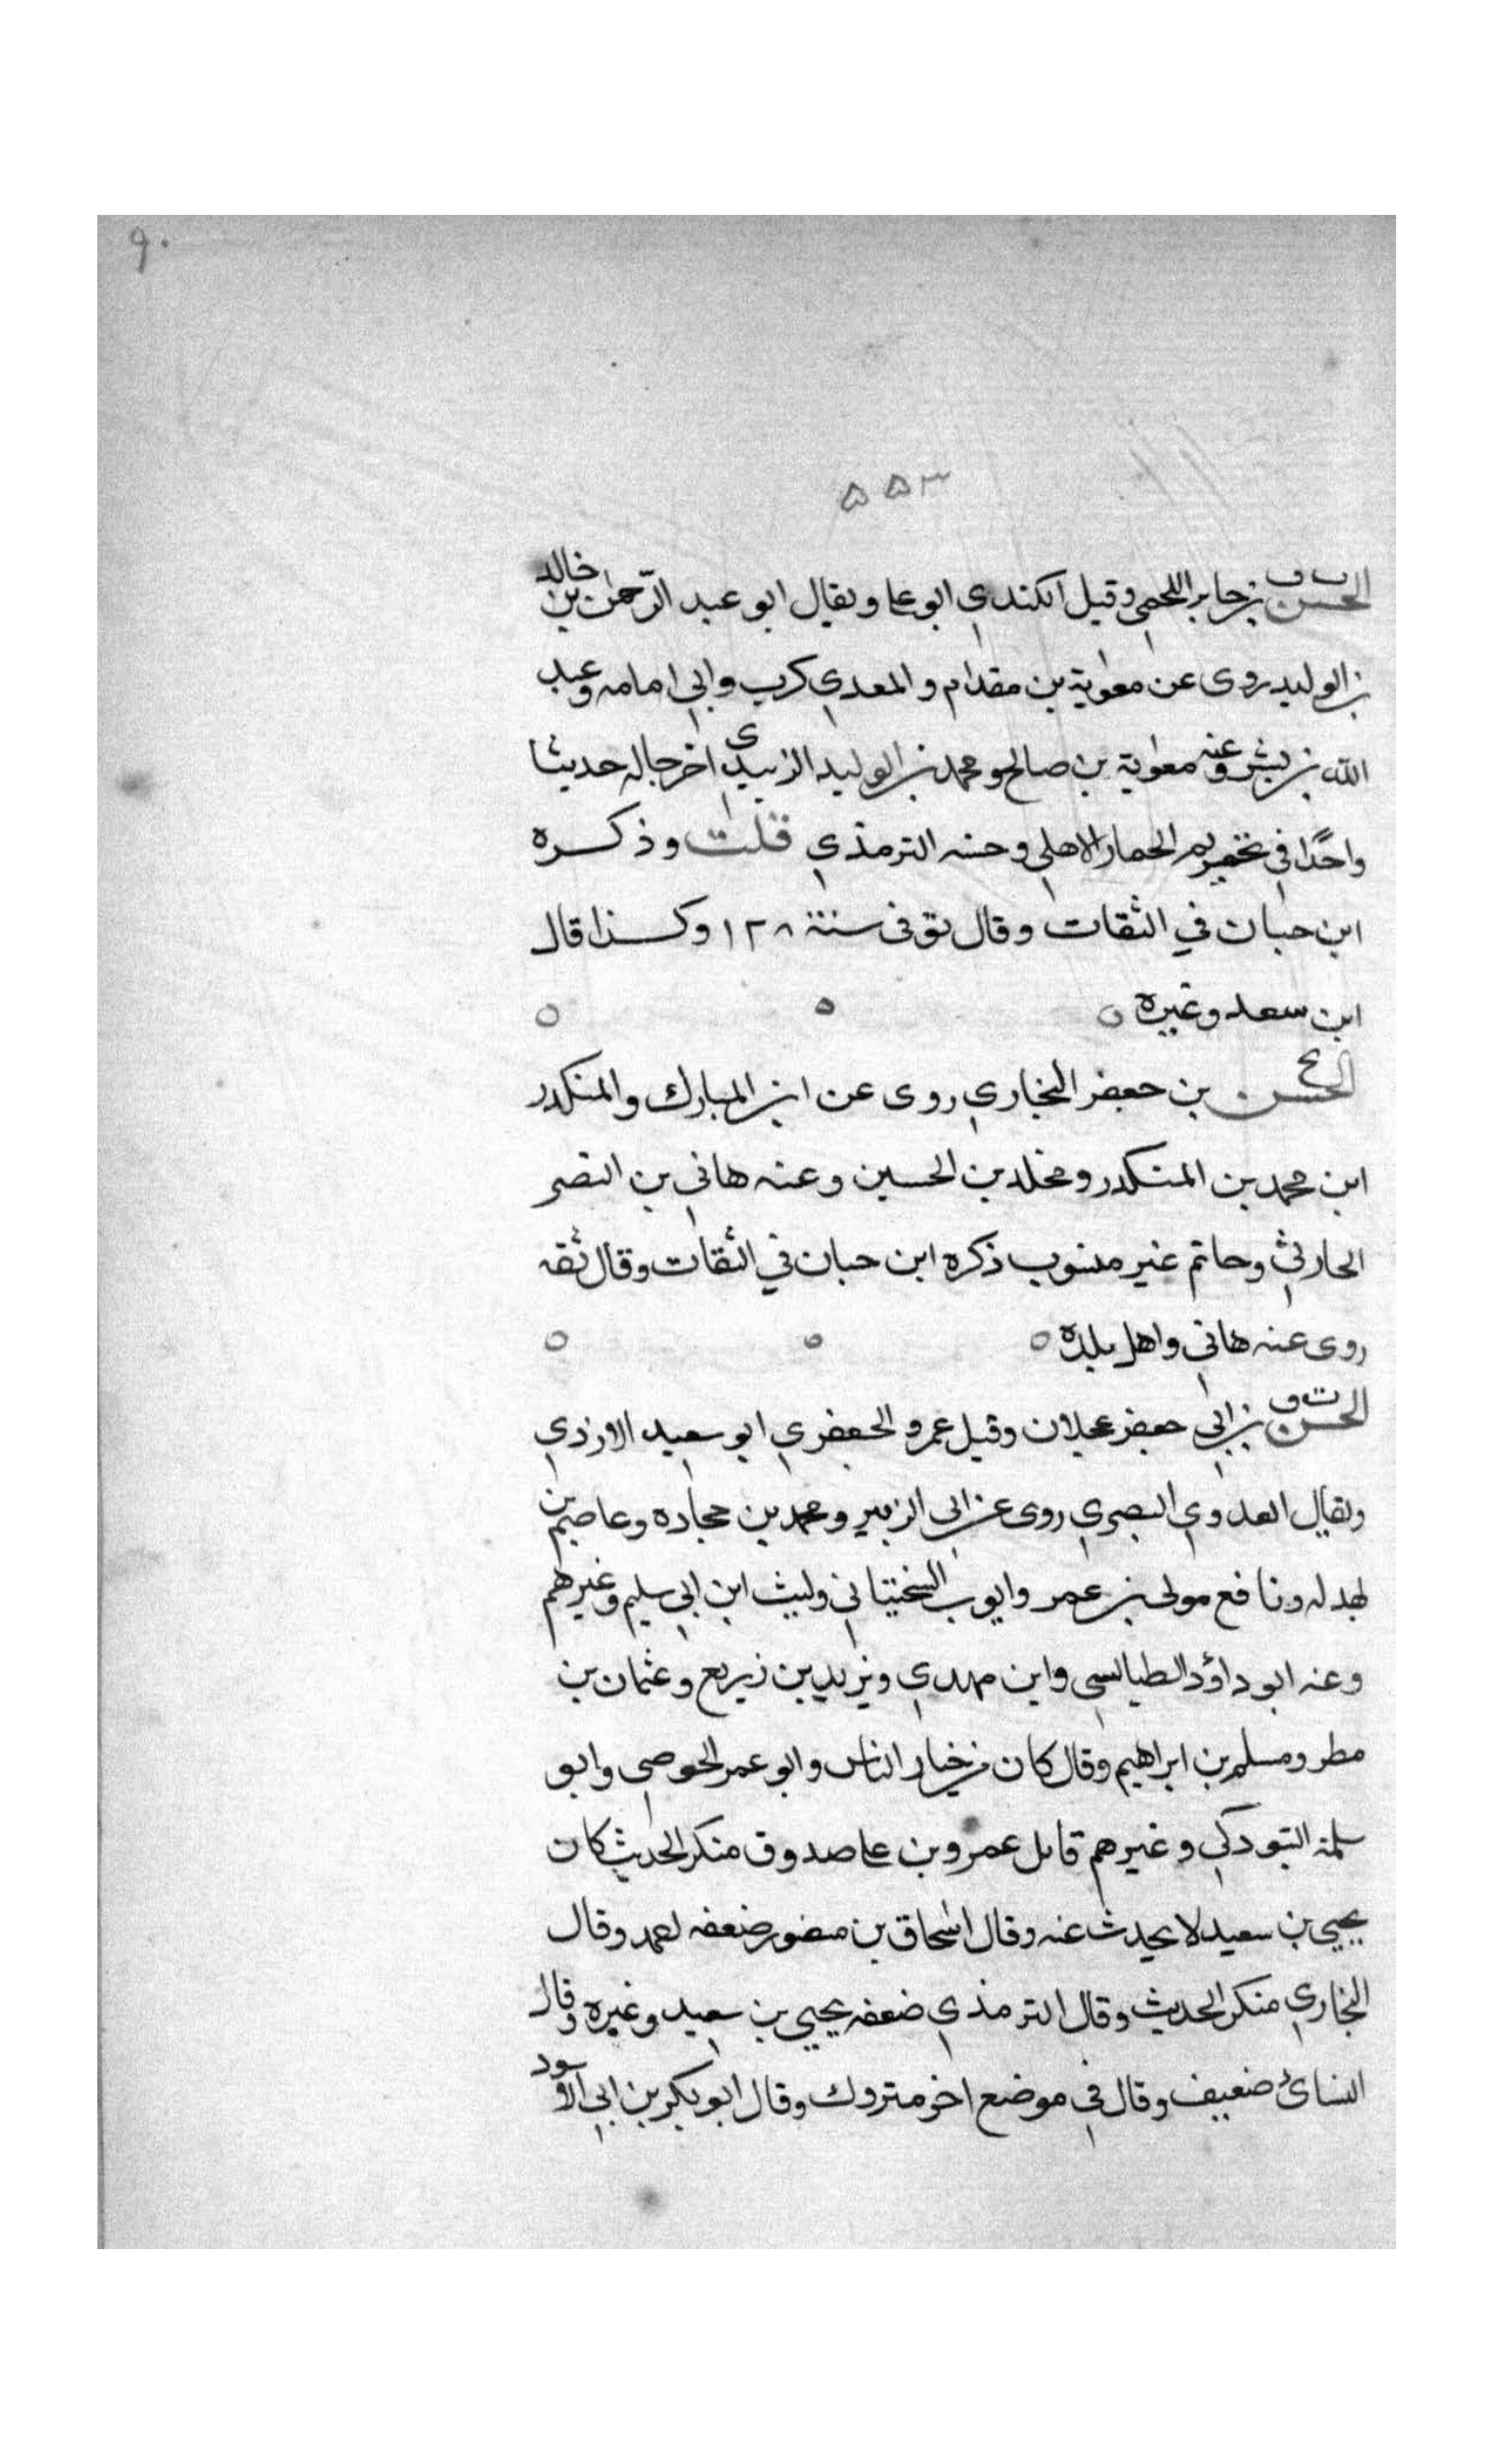 ٩٠
٥٥٣
الحسن بن جابر اللخمي وقيل الكندي ابو علي ويقال ابو عبد الرحمن بن خالد
بن الوليد روى عن معوية بن مقدام و المعدي كرب وابي امامه وعبد
الله بن بشر وعنه معوية بن صالح ومحمد بن الوليد الزبيدي اخرجا له حديثا
واحدًا في تحريم الحمار الاهلي وحسنه الترمذي قلت وذكره
ابن حبان في الثقات وقال توفى سنة ١٢٨ وكذا قال
ابن سعد وغيره
الحسن بن جعفر البخاري روى عن ابن المبارك والمنكدر
ابن محمد بن المنكدر ومخلد بن الحسين وعنه هاني بن النضر
الحارثي وحاتم غير منسوب ذكره ابن حبان في الثقات وقال ثقه
روى عنه هاني واهل بلده
الحسن بن ابي جعفر عجلان وقيل عمرو الجعفري ابو سعيد الازدي
ويقال العدوي البصري روى عن ابي الزبير ومحمد بن حجاده وعاصم بن
بهدله ونافع مولى بن عمر وايوب السختياني وليث ابن ابي سليم وغيرهم
وعنه ابو داؤد الطيالسي وابن مهدي ويزيد بن زيريع وعثمان بن
مطر ومسلم بن ابراهيم وقال كان من خيار الناس وابو عمر الحوصي وابو
سلمة التبودكي وغيرهم قال عمرو بن علي صدوق منكر الحديث كان
يحيي بن سعيد لا يحدث عنه وقال اسحاق بن منصور ضعفه احمد وقال
البخاري منكر الحديث وقال الترمذي ضعفه يحيي بن سعيد وغيره وقال
النسائ ضعيف وقال في موضع اخر متروك وقال ابو بكر بن ابي الاسود